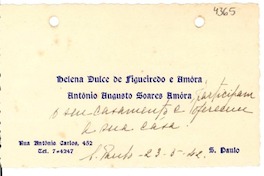 4365
Helena Dulce de Figueiredo e Amóra
António Augusto Soares Amóra participam
o seu casamento e oferecem
a sua casa
Rua António Carlos, 452
Tel. 7-4247
S. Paulo
S. Paulo - 23-5-42